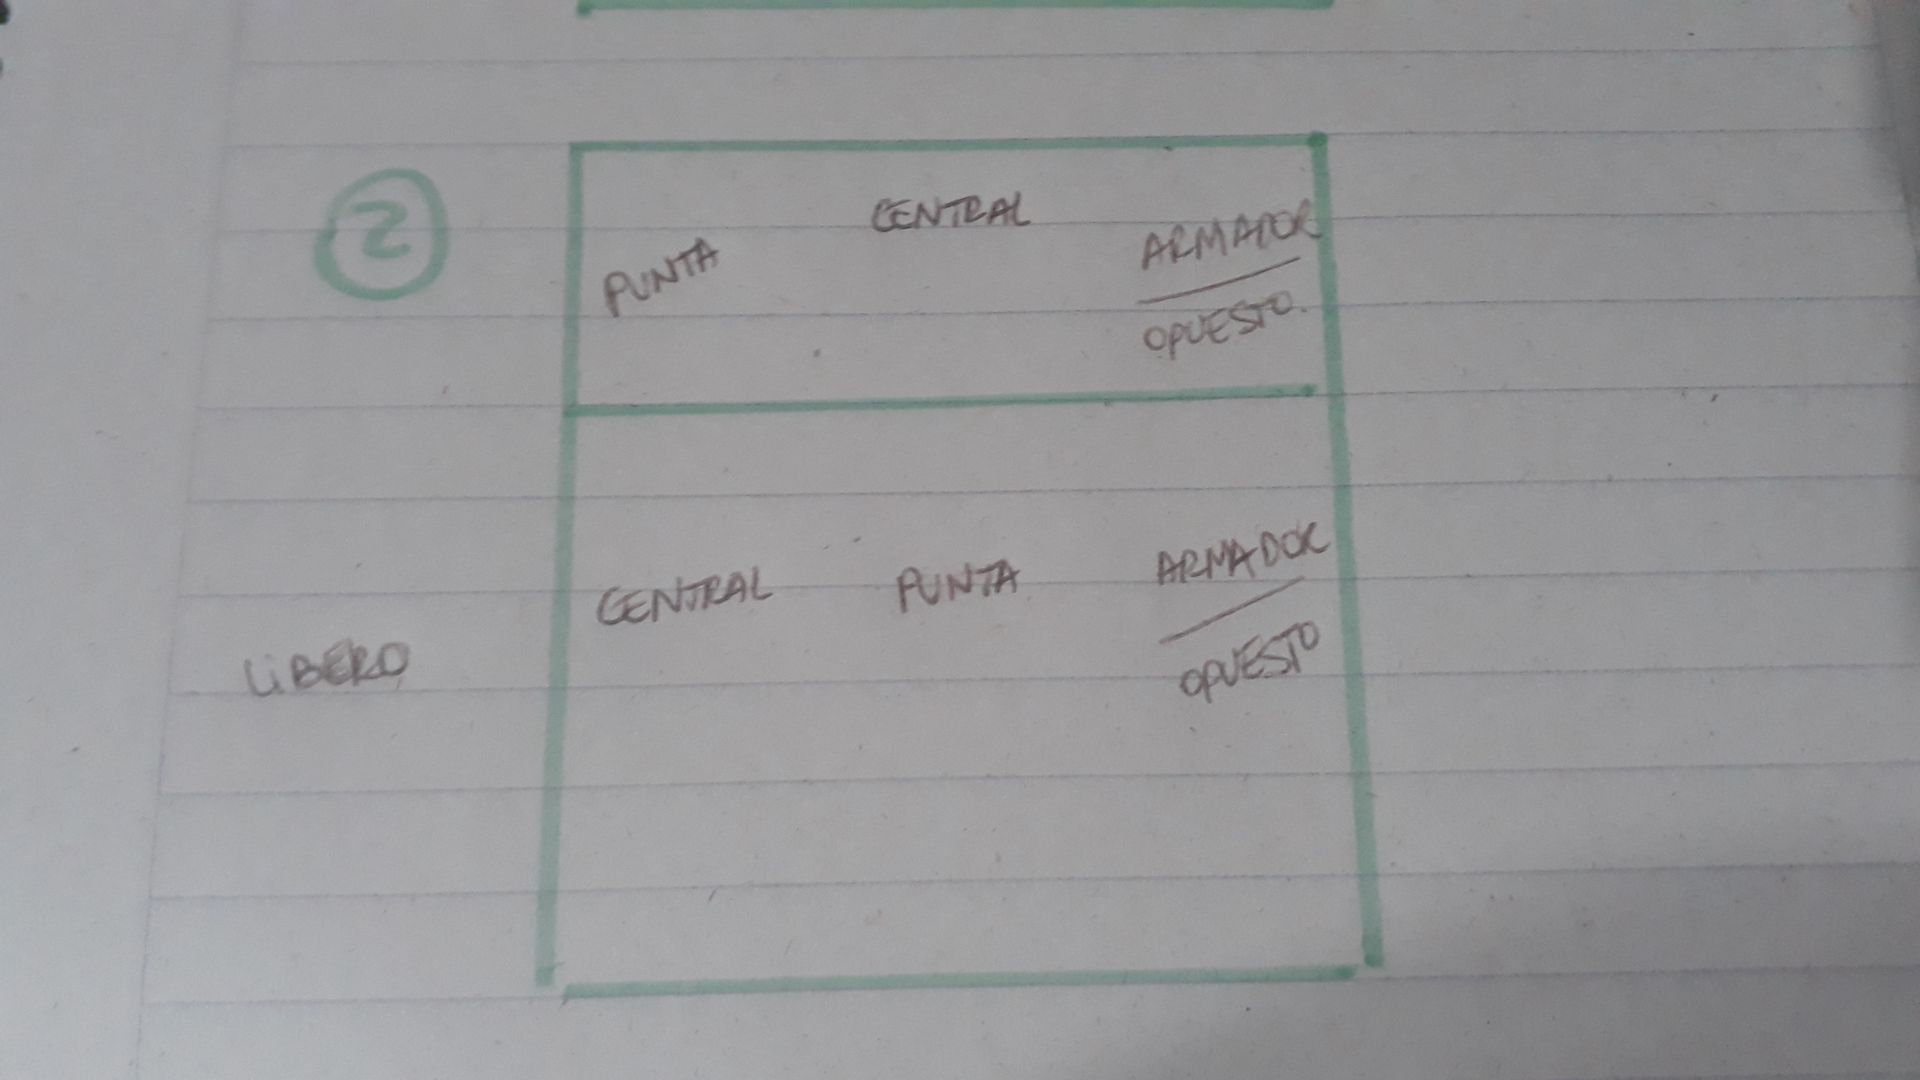 2
CENTRAL
PUNTA
ARMADOR
OPUESTO.
CENTRAL PUNTA ARMADOR
OPUESTO
LIBERO